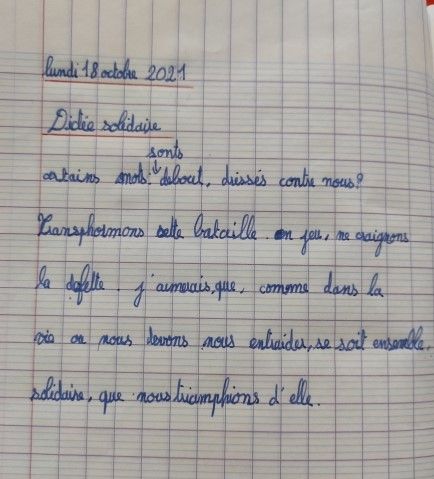 lundi 18 octobre 2021
Dictée solidaire
sonts
certains mots debout, dressés contre nous?
Transphormons cette bataille en jeu, ne craignons
la defette. j'aimerais, que, comme dans la
vie ou nous devons nous entraider, se soit ensemble,
solidaire, que nous triomphions d'elle.